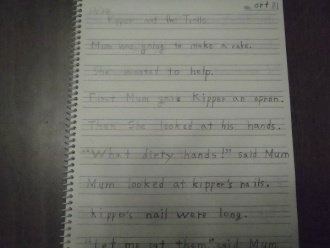 ort 81
Kipper and the Trolls
Mum was going to make a cake.
She wanted to help.
First Mum gave Kipper an apron.
Then She looked at his hands.
"What dirty hands!" said Mum
Mum looked at kipper's nails.
kipper's nail were long.
"Let me cut them" said Mum